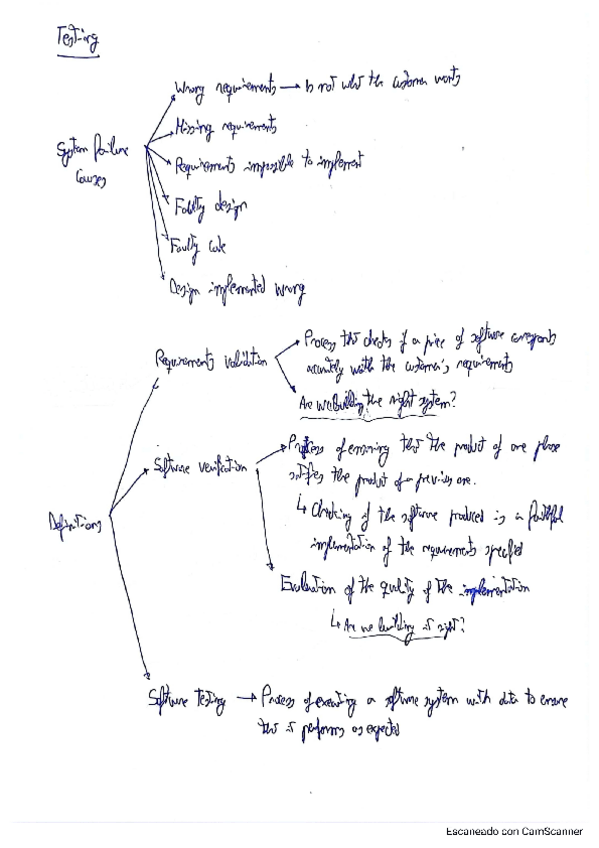 Testing
Wrong requirements → Is not what the customer wants
Missing requirements
System failure
causes
Requirements impossible to implement
Faulty design
Faulty code
Design implemented wrong
Requirements validation
Process that checks if a piece of software corresponds
accurately with the customer's requirements
Are we building the right system?
Software verification
Process of ensuring that the product of one phase
satisfies the product of a previous one.
↳ Checking if the software produced is a faithful
implementation of the requirements specified
Definitions
Evaluation of the quality of the implementation
↳ Are we building it right?
Software testing → Process of executing a software system with data to ensure
that it performs as expected
Escaneado con CamScanner